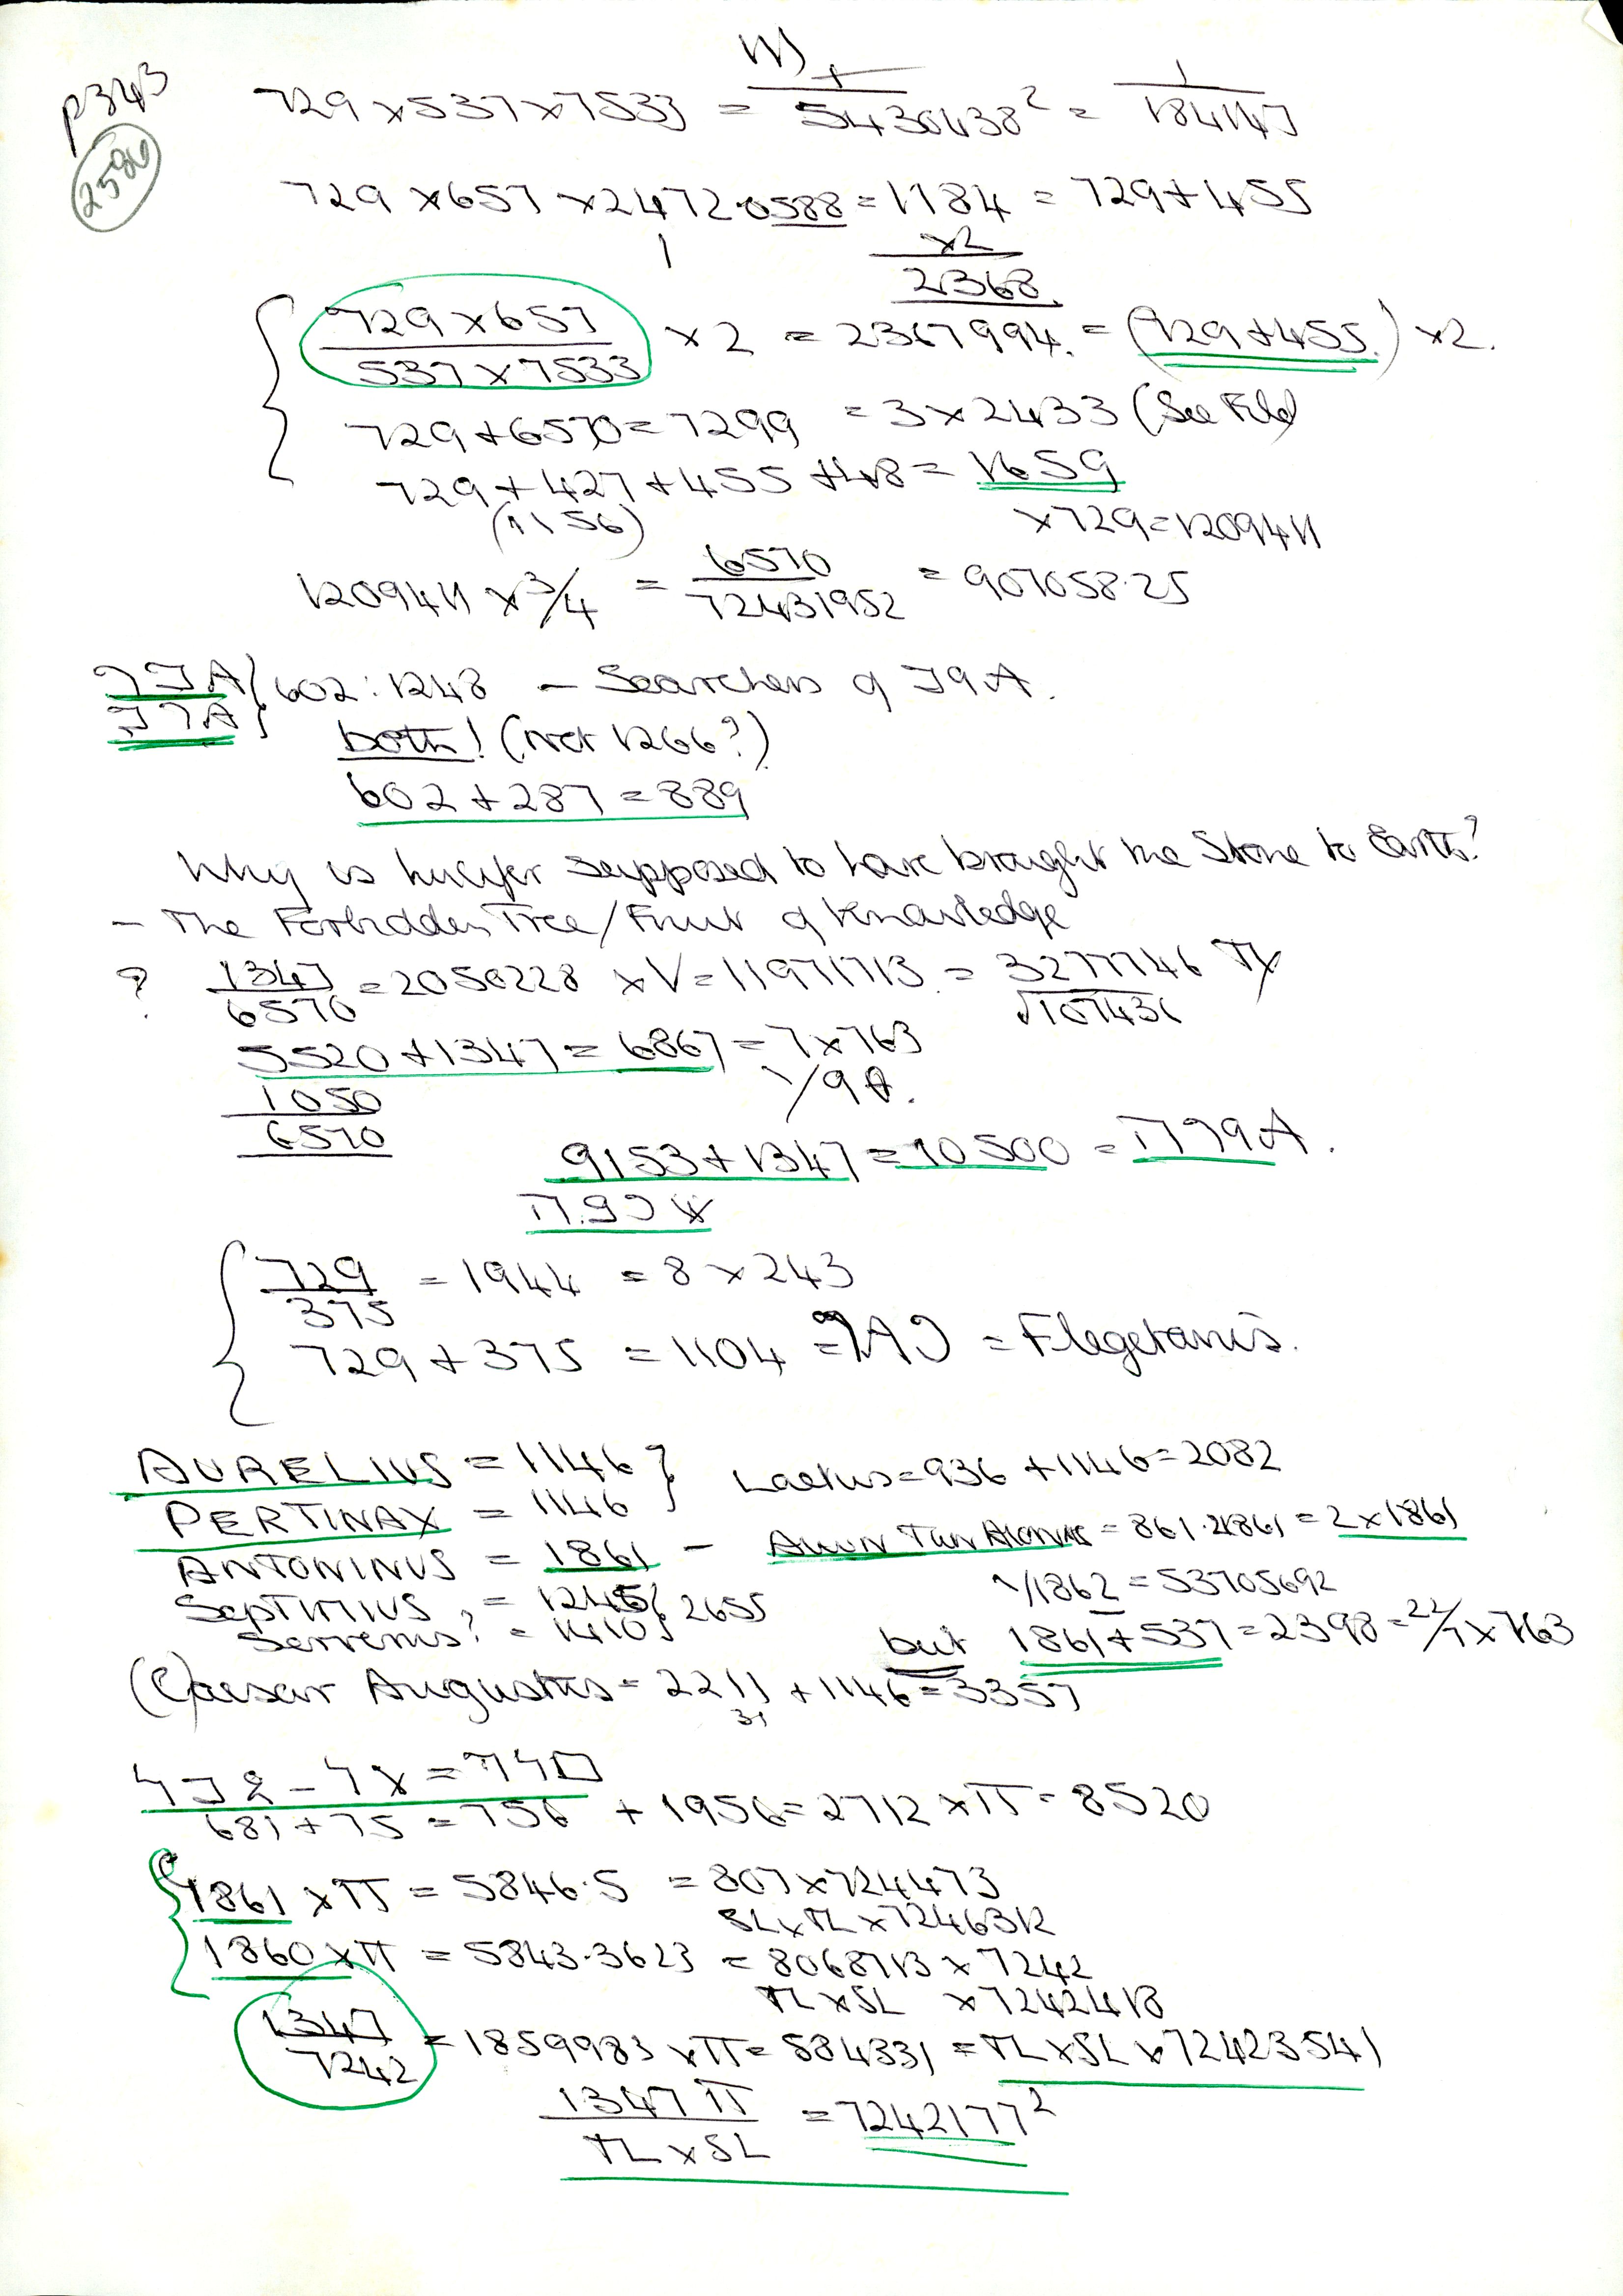 p343
2586
729 x 537 x 7533 = 1/5430438² = 1/184147
729 x 657 x 2472.0588 = 1184 = 729 + 455
x2
2368.
729 x 657 / 537 x 7533 x 2 = 2367994. = (729 + 455.) x 2.
729 + 6570 = 7299 = 3 x 2433 (See File)
729 + 427 + 455 + 48 = 1659
(1156) x 729 = 1209411
1209411 x 3/4 = 6570/72431952 = 907058.25
602:1248 — Searchers of
both! (not 1266?)
602 + 287 = 889
Why is Lucifer supposed to have brought the Stone to Earth?
— The Forbidden Tree/Fruit of Knowledge
? 1347/6570 = 2050228 x √ = 11971713. = 3277746
√107431
5520 + 1347 = 6867 = 9 x 763
1050
6570
9153 + 1347 = 10500 =
729/375 = 1944 = 8 x 243
729 + 375 = 1104 = = Flegetanis.
AURELIUS = 1146 } Laetus = 936 + 1146 = 2082
PERTINAX = 1146
ANTONINUS = 1861 — = 861.2861 = 2 x 1861
1/1862 = 53705692
SEPTIMIUS = 1245 } 2655
Serrenus? = 1410
but 1861 + 537 = 2398 = 22/7 x 763
(C)aesar Augustus = 2211 + 1146 = 3357
31
681 + 75 = 756 + 1956 = 2712 x π = 8520
1861 x π = 5846.5 = 807 x 724473
SL x TL x 7246312
1860 x π = 5843.3623 = 8068713 x 7242
TL x SL x 7242418
1347/7242 = 1859983 x π = 584331 = TL x SL x 72423541
1347 π / TL x SL = 7242177²